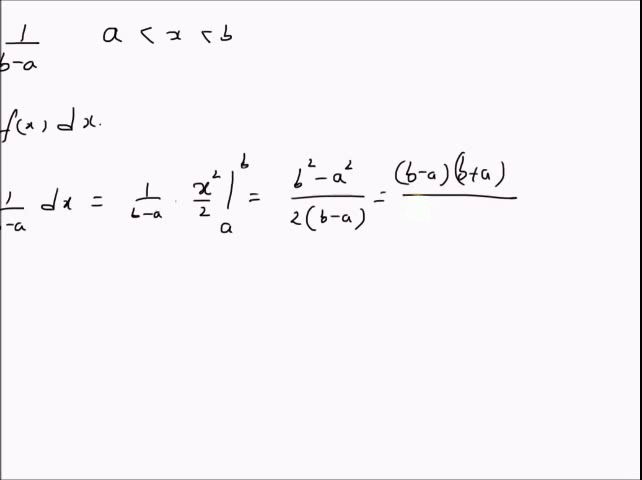 1/(b-a) a < x < b
f(x) dx.
1/(b-a) dx = 1/(b-a) · x²/2 |ₐᵇ = (b²-a²)/(2(b-a)) = (b-a)(b+a)/